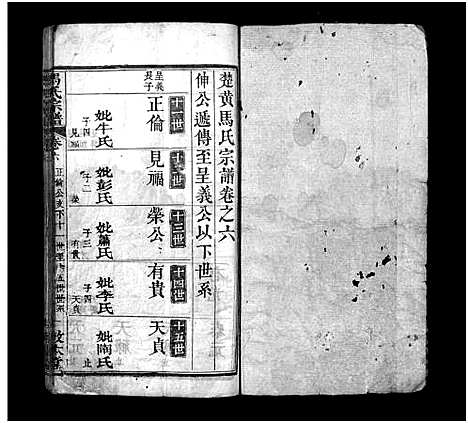 楚黃馬氏宗譜卷之六
伸公遞傳至呈義公以下世系
呈義長子
正倫
妣牛氏
子四
見福
見福
妣彭氏
子二
榮
十三世
榮公
妣蕭氏
子三
有貴
十四世
有貴
妣李氏
子四
天貞
十五世
天貞
妣陶氏
止
馬氏宗譜
正倫公支下十一世至十五世世系